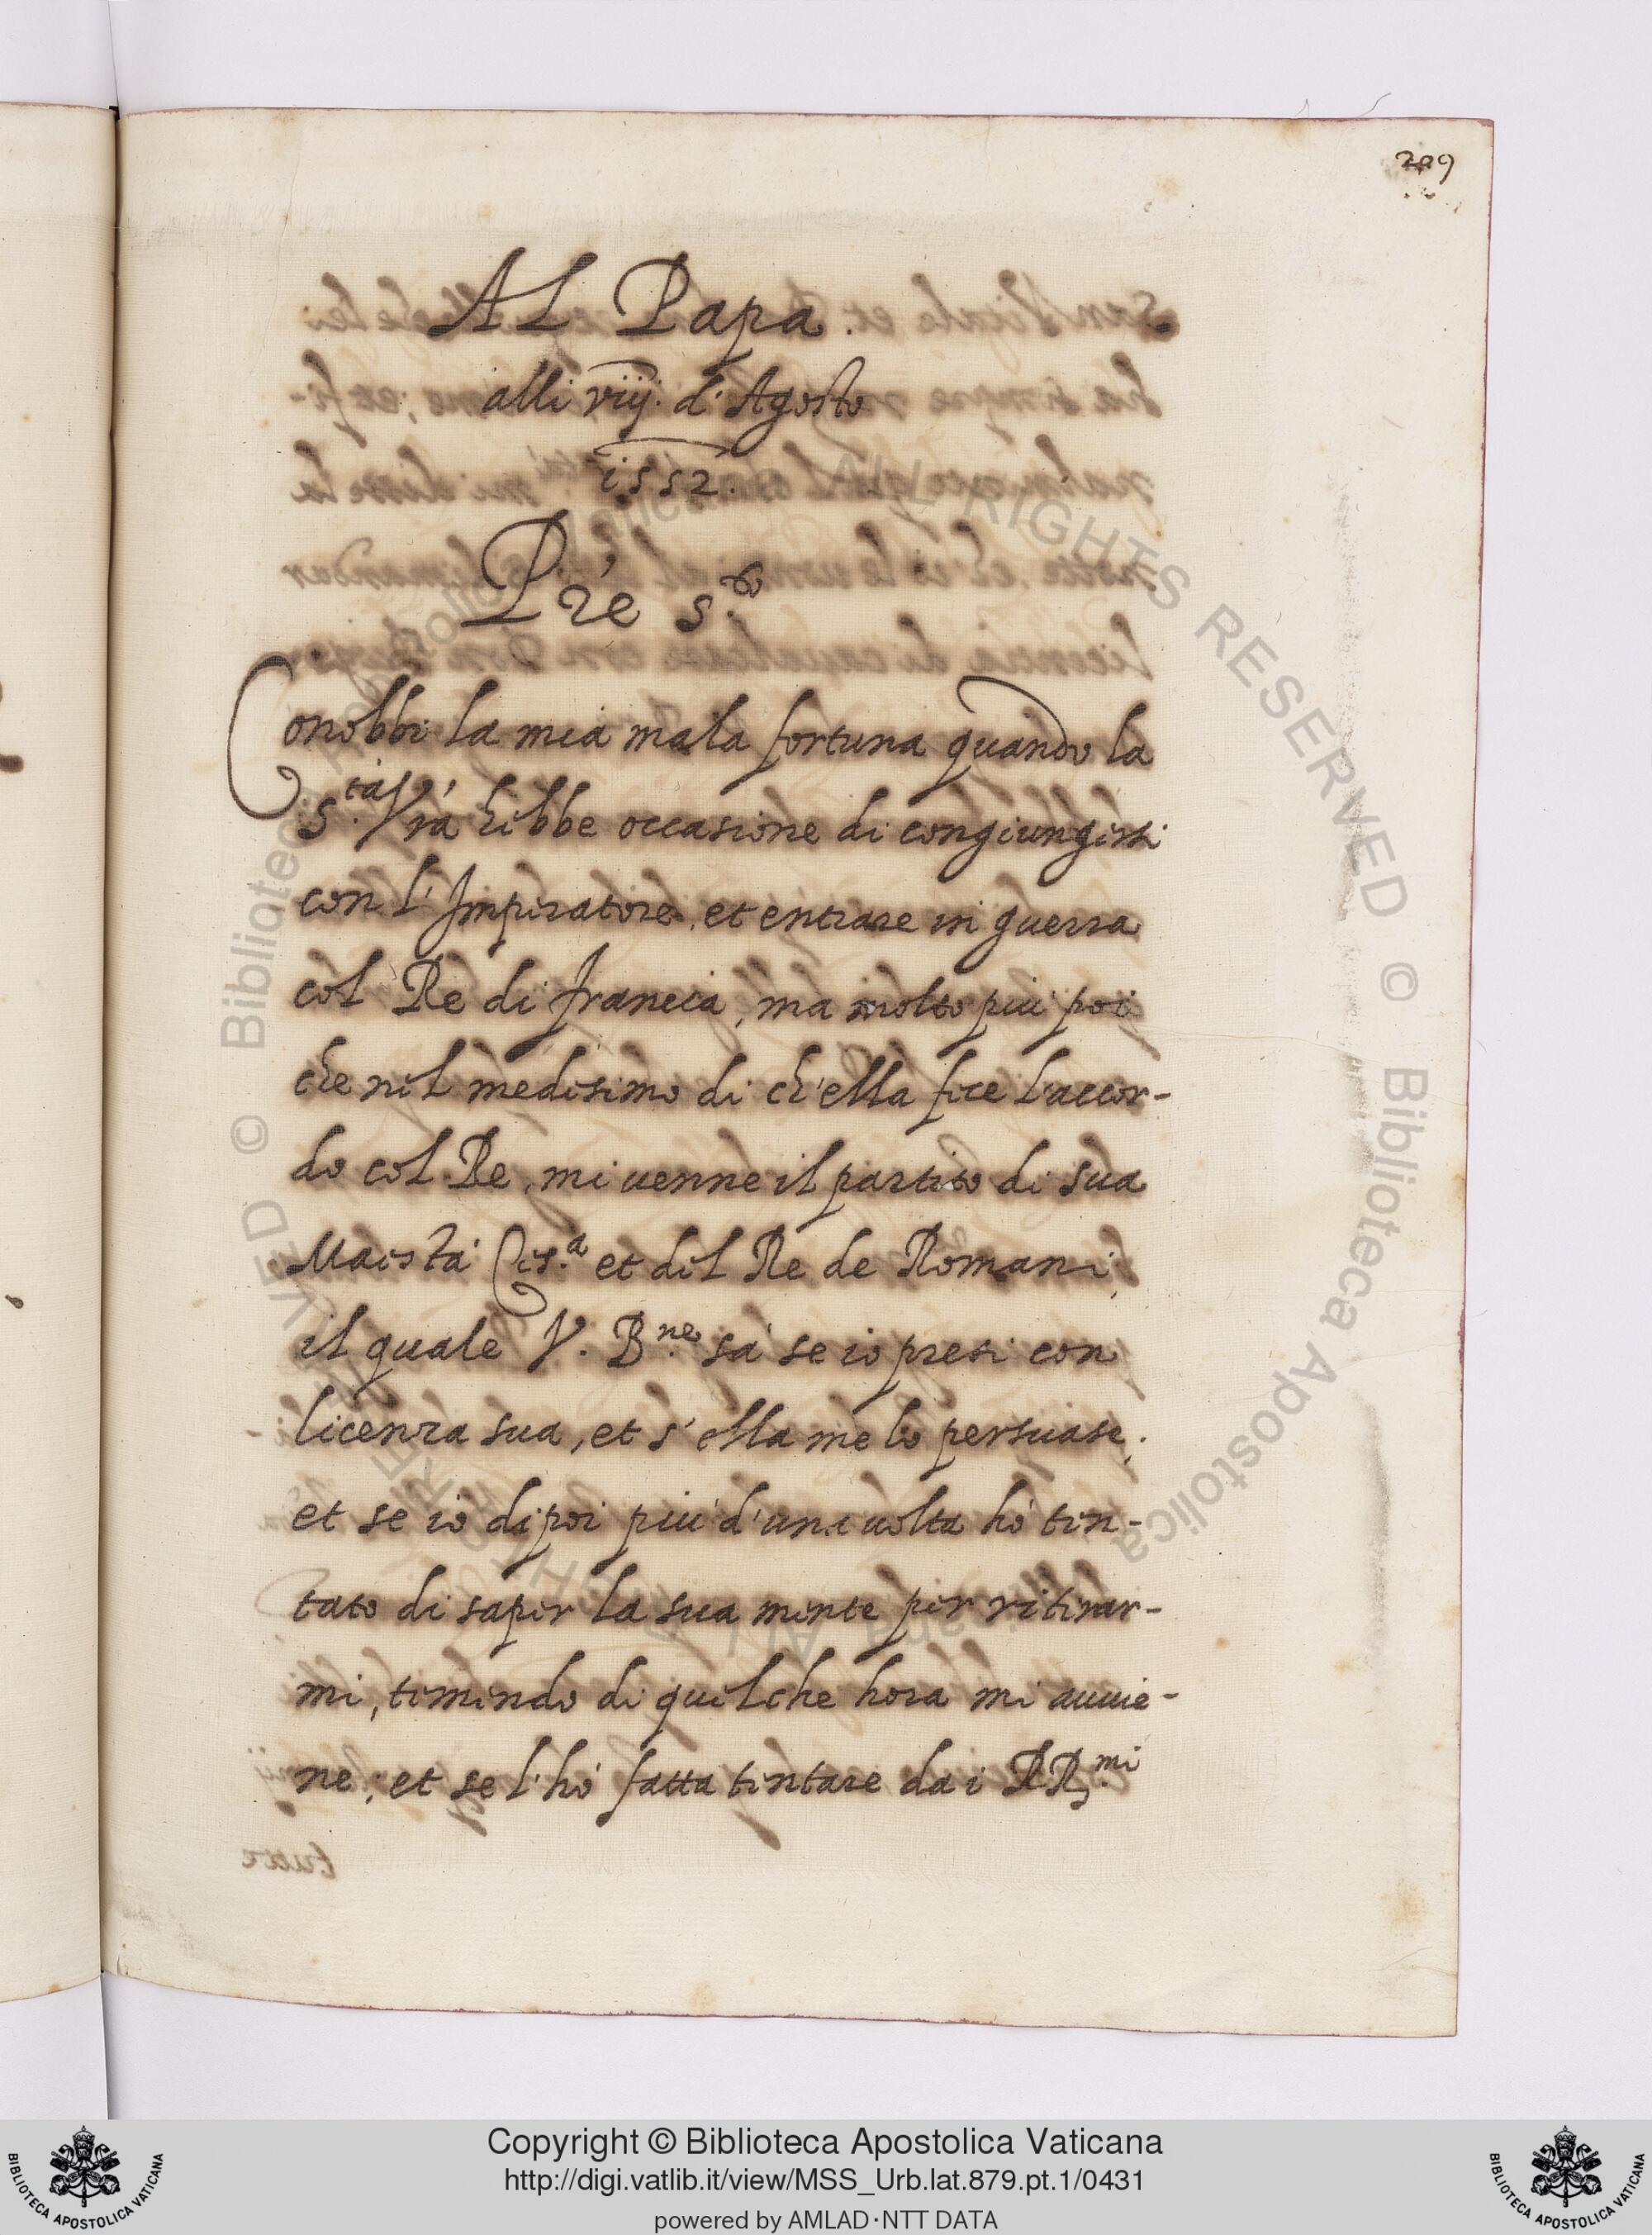 209
AL Papa.
alli viij. d'Agosto
1552.
Pre s.to
Conobbi la mia mala fortuna quando la
S.tà Vrá hebbe occasione di congiungersi
con l'Imperatore, et entrare in guerra
col Re di francia, ma molto più poi
che nel medesimo di ch'ella fece l'accor-
do col Re, mi venne il partito di sua
Maestà Ces.a et del Re de Romani,
il quale V. B.ne sà se io presi con
licenza sua, et s'ella me lo persuase,
et se io dipoi più d'una uolta hò ten-
tato di saper la sua mente per ritirar-
mi, temendo di quel che hora mi auuie-
ne, et se l'hò fatta tentare da i RR.mi
ALL RIGHTS RESERVED © Biblioteca Apostolica
Copyright © Biblioteca Apostolica Vaticana
http://digi.vatlib.it/view/MSS_Urb.lat.879.pt.1/0431
powered by AMLAD·NTT DATA
BIBLIOTECA APOSTOLICA VATICANA
BIBLIOTECA APOSTOLICA VATICANA